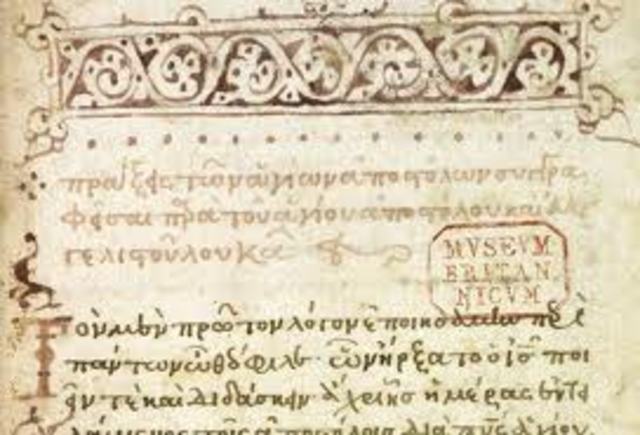 πράξεις τῶν ἁγίων ἀποστόλων συγγρα
φεῖσαι παρὰ τοῦ ἁγίου ἀποστόλου καὶ εὐαγ
γελιστοῦ λουκᾶ
MVSEVM
BRITAN
NICVM
Τὸν μὲν πρῶτον λόγον ἐποιησάμην περὶ
πάντων ὦ θεόφιλε ὧν ἤρξατο ὁ ις ποι
εῖν τε καὶ διδάσκειν ἄχρι ἧς ἡμέρας ἐντει
λάμενος τοῖς ἀποστόλοις διὰ πνς ἁγίου